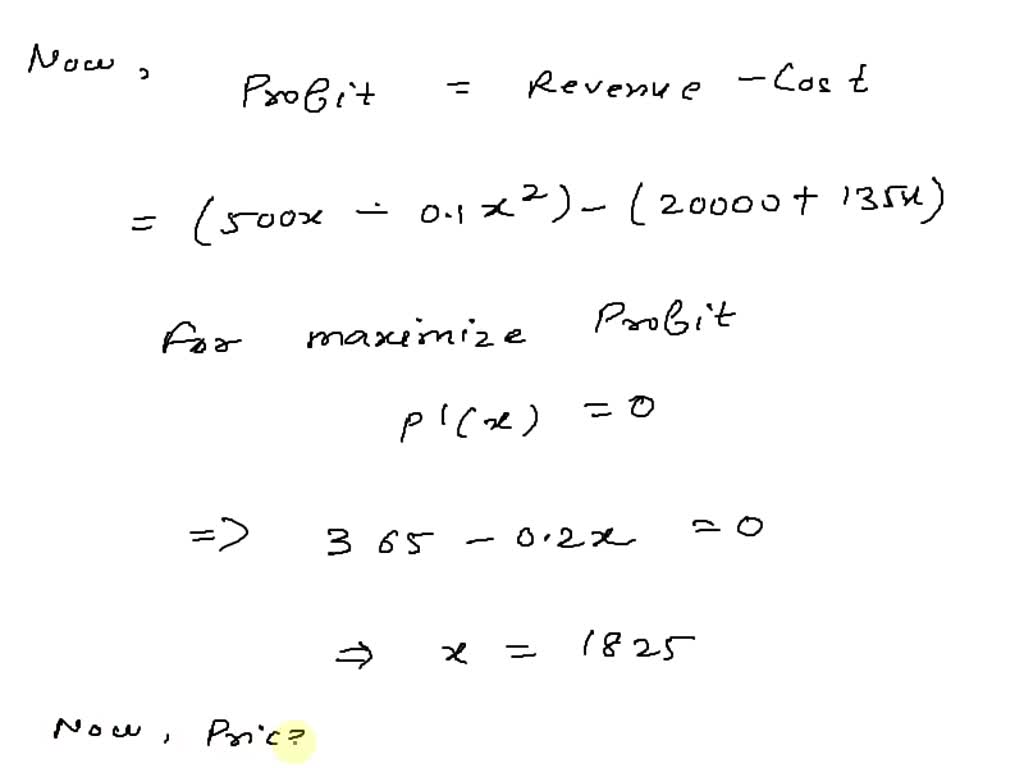 Now, Profit = Revenue - Cost
= (500x - 0.1x²) - (20000 + 135x)
For maximize Profit
P'(x) = 0
=> 365 - 0.2x = 0
⇒ x = 1825
Now, Pric